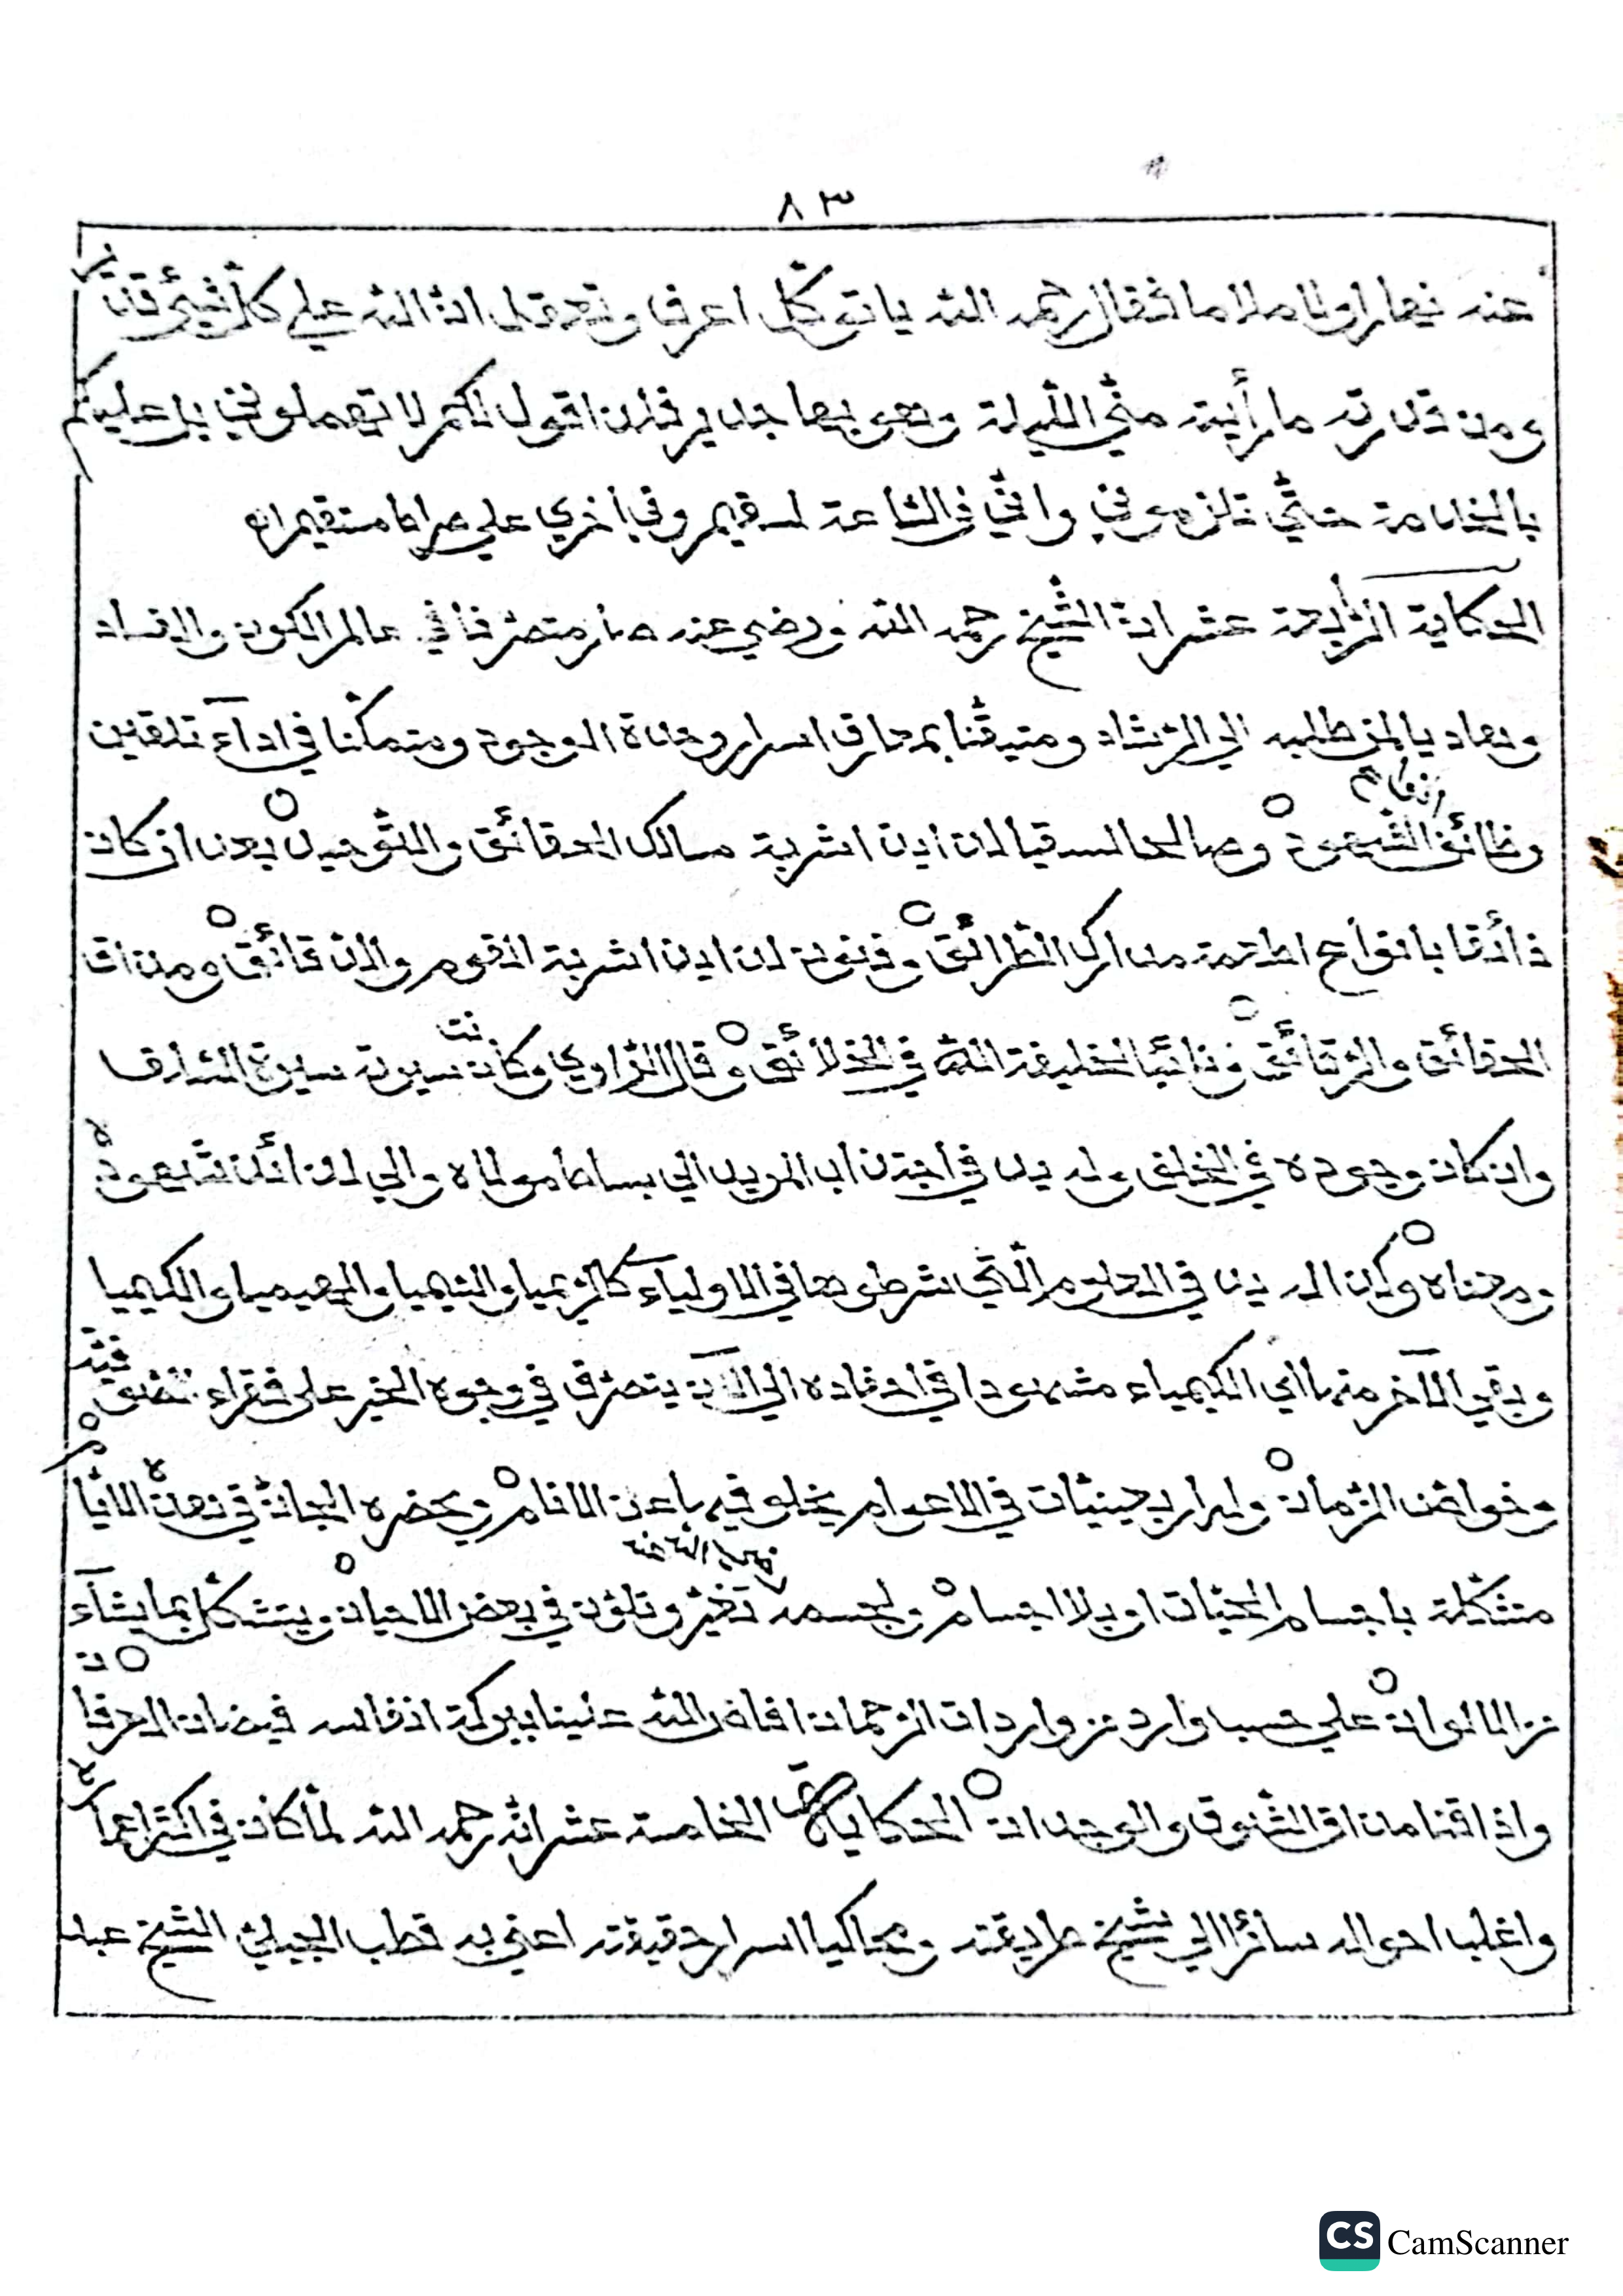 ٨٣
عنه نهارا ولا ملاما فقال رحمه الله يا توكل اعرف وتعقل انّ الله علي كلّ شيئ قدير
ومن قدرته ما رأيته منّي اللّيلة وهو بها جدير فلن اقول لكم لا تهملوني بل عليكم
بالخدمة حتّي تلزموني وانّي في السّاعة لسقيم وفي أخري علي صراط مستقيم اه
الحكاية الرّابعة عشر انّ الشّيخ رحمه الله ورضي عنه صار متصرّفا في عالم الكون والافساد
وهاديا لمن طلبه الي الرّشاد ومتيقّنا بمعارف اسرار وحدة الوجود ومتمكّنا في اداء تلقين
وظائف الشّهود وصالحا لسقيا لدن اشربة مسالك الحقائق والتّوحيد بعد ان كان
ذائقا بانواع اطعمة مدارك الطّرائق وفنون لدن اشربة القوم والدّقائق ومن ات
الحقائق والرّقائق ونائبا لخليفة اللّه في الخلائق وقال الرّاوي وكانت سيرته سيرة الشارف
وان كان وجوده في الخلق وله يد في اجتذاب المريد الي بساط مولاه والي لدن شهوده
ومعناه وكذا له يد في العلوم الّتي شرطوها في الاولياء كالرّيميا والسّيميا والهيميا والكيميا
وبقي الآخر منها اي الكيمياء مشهودا في احفاده الي الآن يتصرّف في وجوه الخير علي فقراء
الزّمان وله اربعينيّات في الاعوام يخلو فيها عن الانام ويحضره الجانّ في هذه الايّام
متشكّلة باجسام الحيّات او بلا اجسام ولجسمه تغيّر وتلوّن في بعض الاحيان ويتشكّل بما يشاء
من الالوان علي حسب وارد من واردات الرّحمان افاض اللّه علينا ببركة انفاسه فيضان العرفان
واذاقنا مذاق الشّوق والوجدان الحكاية الخامسة عشر انّه رحمه الله لمّا كان في اكثر اعماله
واغلب احواله سائرا الي شيخ طريقته ومحاكيا اسرار حقيقته اعني به قطب الجيليّ الشّيخ عبد
CS CamScanner